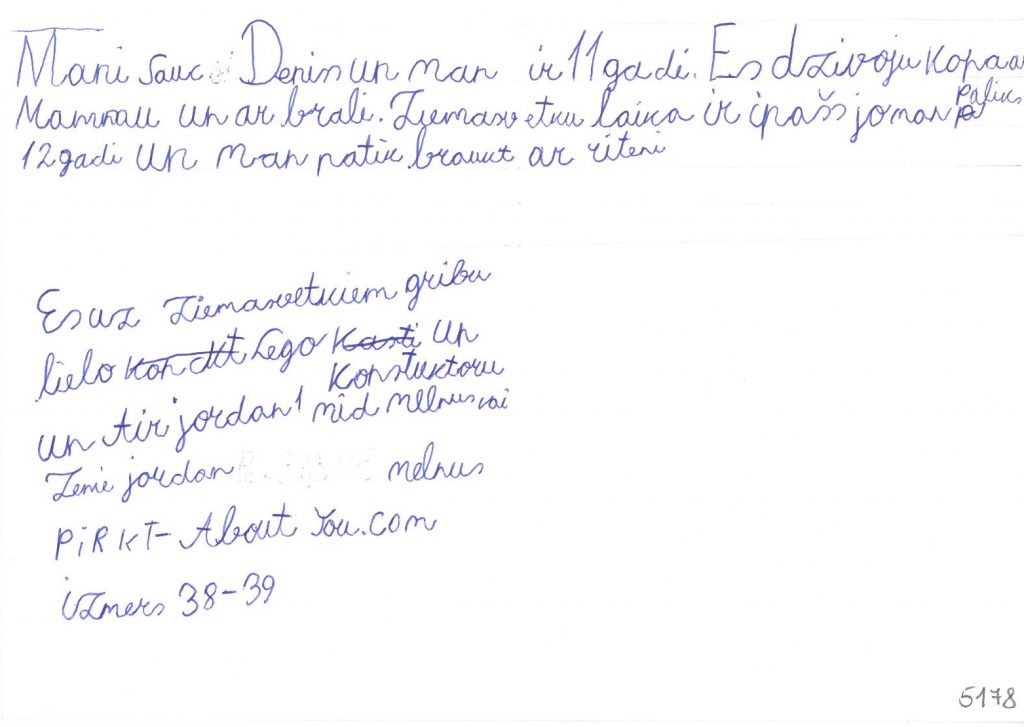 Mani sauc Denis un man ir 11 gadi. Es dzivoju kopa ar
Mammau un ar brali. Ziemasvetku laika ir ipašs jo man paliks
12 gadi un man patik braukt ar riteni
Es uz Ziemasvetkiem gribu
lielo Lego un
Konstuktoru
un Air jordan 1 mid melnus vai
Zemie jordan melnus
PiRKT- About You.com
izmers 38-39
5178